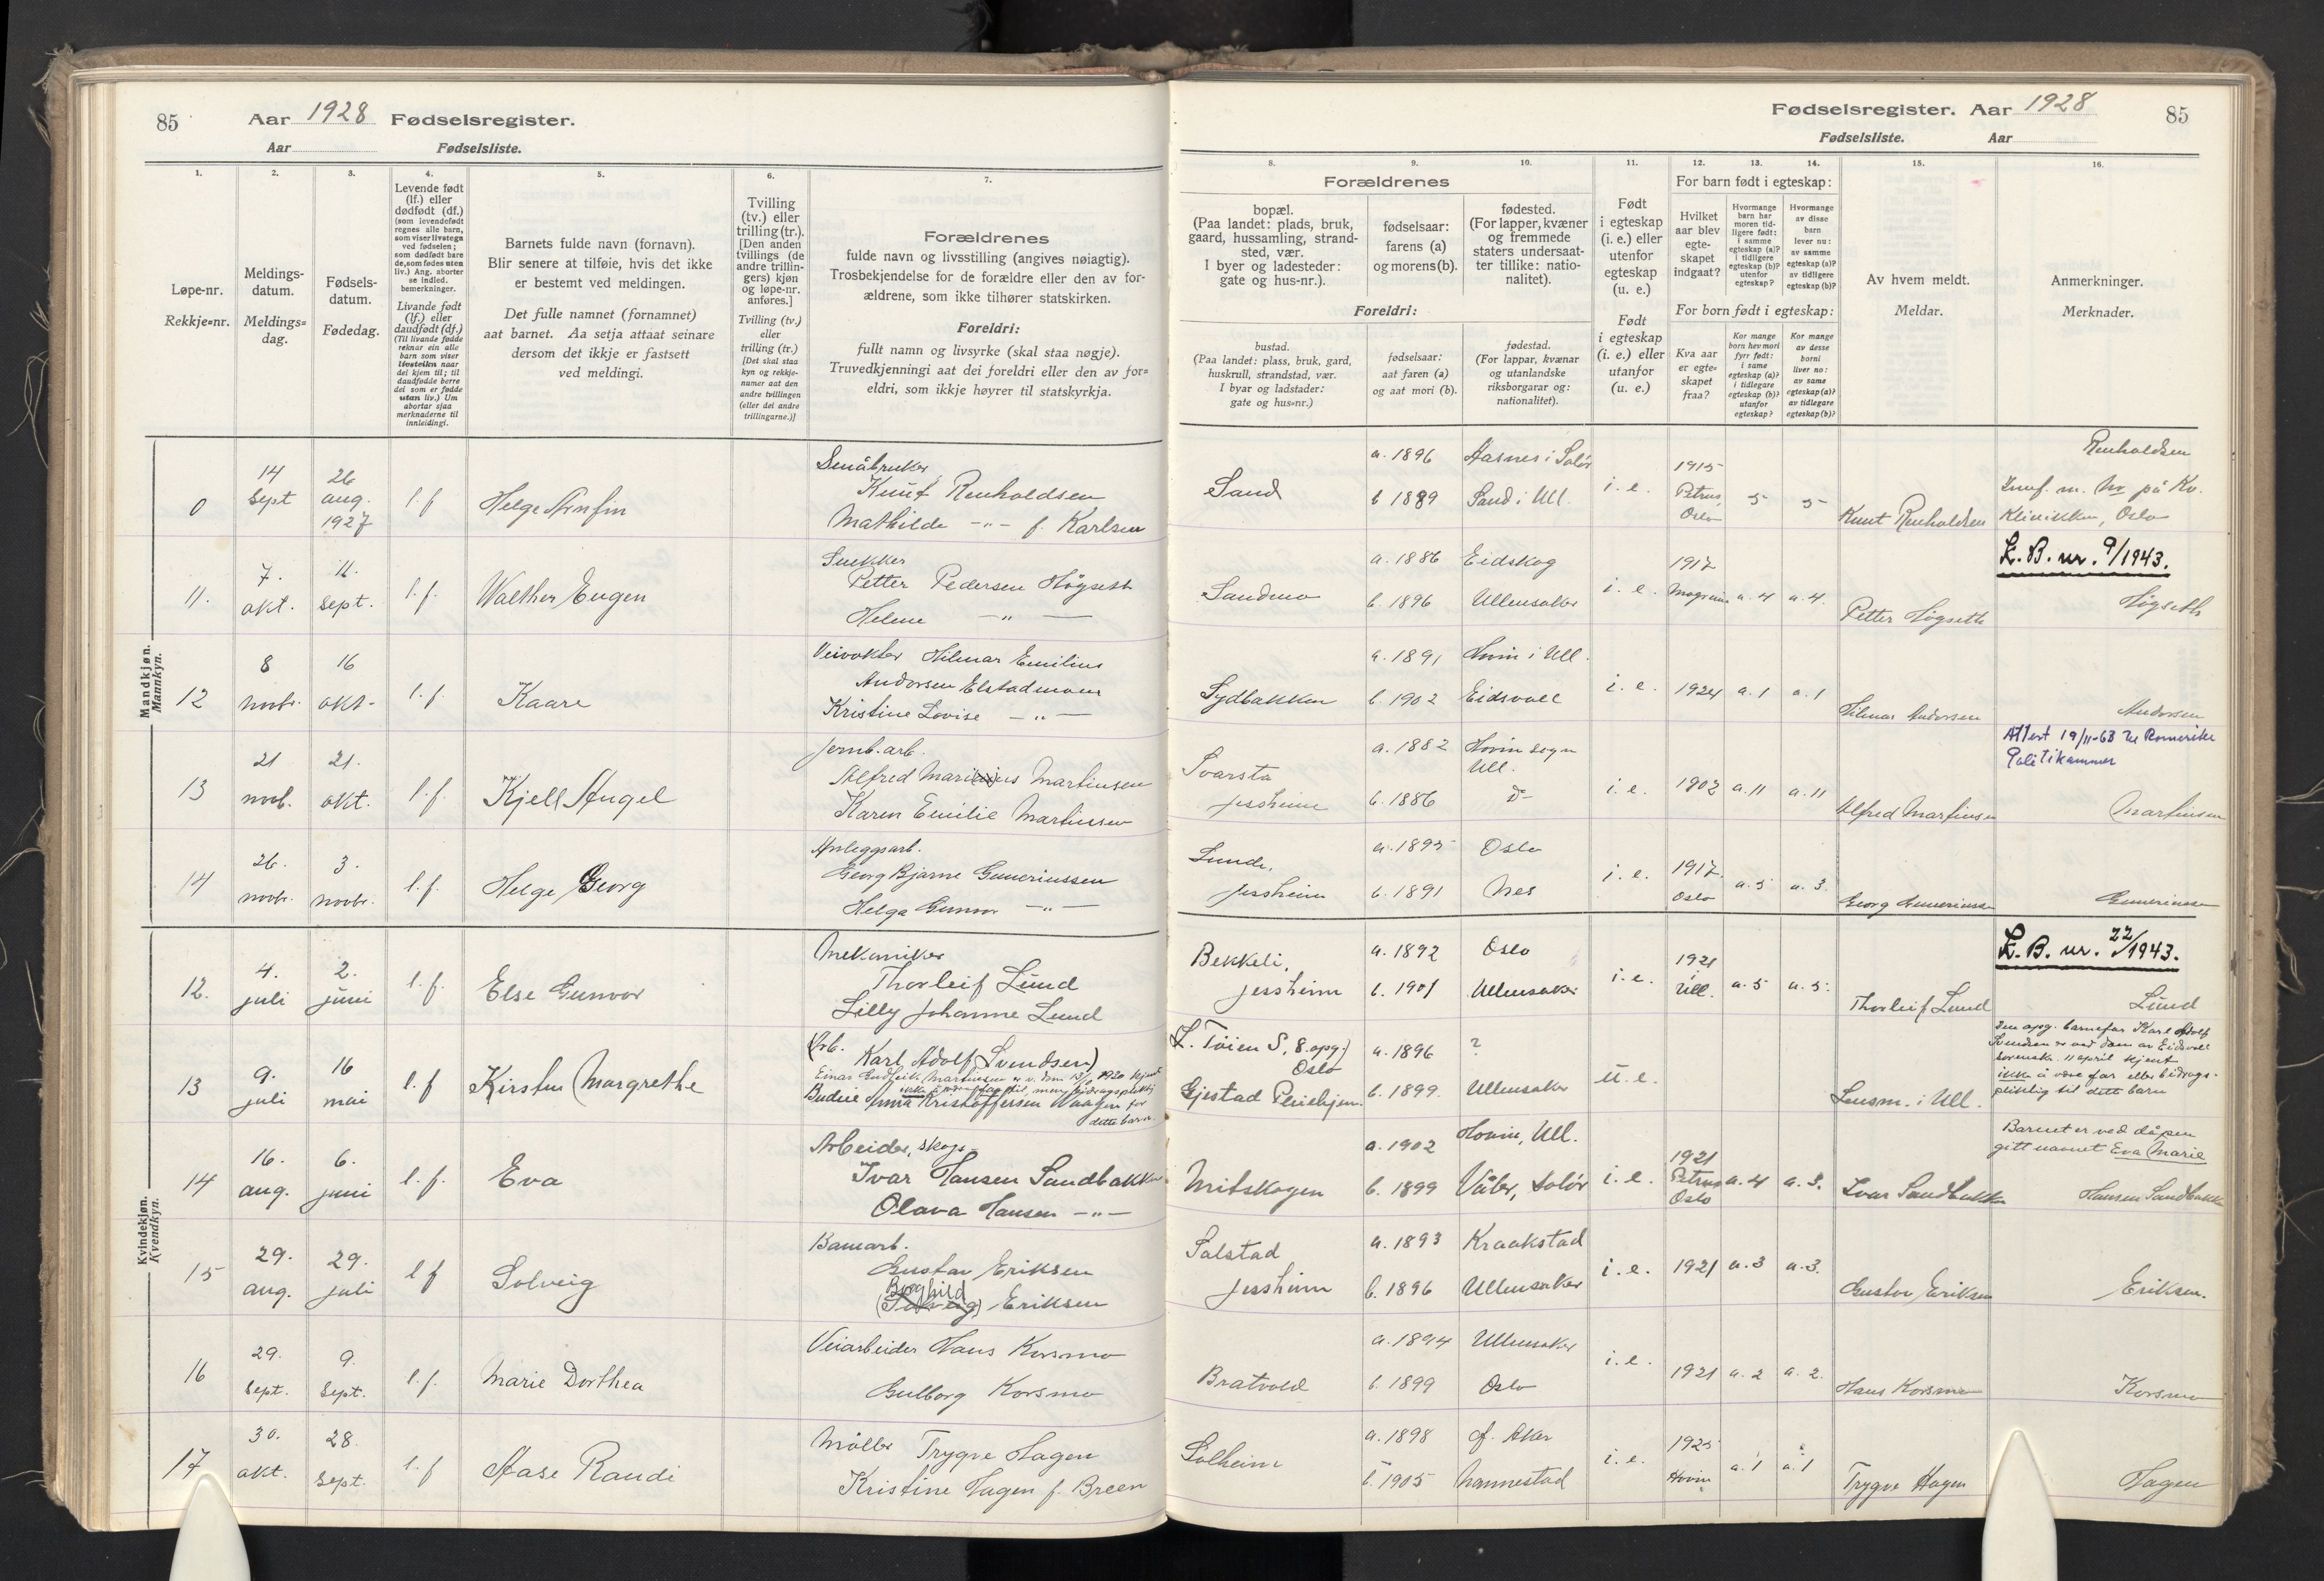 85 Aar 1928 Fødselsregister.
Aar Fødselsliste.
1. 2. 3. 4. 5. 6. 7.
Løpe-nr.
Rekkje=nr.
Meldings-
datum.
Meldings=
dag.
Fødsels-
datum.
Fødedag.
Levende født
(lf.) eller
dødfødt (df.)
(som levendefødt
regnes alle barn,
som viser livstegn
ved fødselen;
som dødfødt bare
de, som fødes uten
liv.) Ang. aborter
se indled.
bemerkninger.
Livande født
(lf.) eller
daudfødt (df.)
(Til livande fødde
reknar ein alle
barn som viser
livsteikn naar
dei kjem til; til
daudfødde berre
dei som er fødde
utan liv.) Um
abortar sjaa
merknaderne til
innleidingi.
Barnets fulde navn (fornavn).
Blir senere at tilføie, hvis det ikke
er bestemt ved meldingen.
Det fulle namnet (fornamnet)
aat barnet. Aa setja attaat seinare
dersom det ikkje er fastsett
ved meldingi.
Tvilling
(tv.) eller
trilling (tr.).
[Den anden
tvillings (de
andre trillin-
gers) kjøn
og løpe-nr.
anføres.]
Tvilling (tv.)
eller
trilling (tr.)
[Det skal staa
kyn og rekkje-
numer aat den
andre tvillingen
(eller dei andre
trillingarne.)]
Forældrenes
fulde navn og livsstilling (angives nøiagtig).
Trosbekjendelse for de forældre eller den av for-
ældrene, som ikke tilhører statskirken.
Foreldri:
fullt namn og livsyrke (skal staa nøgje).
Truvedkjenningi aat dei foreldri eller den av for=
eldri, som ikkje høyrer til statskyrkja.
Mandkjøn.
Mannkyn.
0 14 sept 26 aug. 1927 l f Helge Arnfin
Småbruker
Knut Renholdsen
Mathilde -"- f. Karlsen
11. 7. okt. 11. sept. l.f. Walther Eugen
Snekker
Petter Pedersen Høgseth
Helene -"-
12 8 novbr. 16 okt. l.f. Kaare
Veivokter Hilmar Emilius
Andorsen Elstadmoen
Kristine Lovise -"-
13 21 novb. 21. okt. l.f. Kjell Angel
Jernb. arb.
Alfred Martinsen
Karen Emilie Martinsen
14 26. novbr. 3. novbr. l.f. Helge Georg
Anleggsarb.
Georg Bjarne Gunerinssen
Helga Gunvor -"-
Kvindekjøn.
Kvendkyn.
12. 4. juli 2. juni l.f. Else Gunvor
Mekaniker
Thorleif Lund
Lilly Johanne Lund
13 9. juli 16 mai l.f Kirsten Margrethe
(Arb. Karl Adolf Svendsen)
Einar Martinsen er v. dom 1930 kjent
ikke å være far til, men bidragspliktig
Budeie Anna Kristoffersen for
dette barn.
14 16. aug. 6. juni l.f. Eva
Arbeider, skogs
Ivar Hansen Sandbakken
Olava Hansen -"-
15 29. aug. 29. juli l f Solveig
Banearb.
Gustav Eriksen
Borghild
(Solveig) Eriksen
16 29. sept. 9. sept. l.f. Marie Dorthea
Veiarbeider Hans Korsmo
Gulborg Korsmo
17 30. okt. 28. sept. l.f Aase Randi
Møller Trygve Hagen
Kristine Hagen f. Breen
Fødselsregister. Aar 1928 85
Fødselsliste. Aar
8. 9. 10. 11. 12. 13. 14. 15. 16.
Forældrenes
bopæl.
(Paa landet: plads, bruk,
gaard, hussamling, strand-
sted, vær.
I byer og ladesteder:
gate og hus-nr.).
fødselsaar:
farens (a)
og morens (b).
fødested.
(For lapper, kvæner
og fremmede
staters undersaat-
ter tillike: natio-
nalitet).
Foreldri:
bustad.
(Paa landet: plass, bruk, gard,
huskrull, strandstad, vær.
I byar og ladstader:
gate og hus=nr.)
fødselsaar:
aat faren (a)
og aat mori (b).
fødestad.
(For lappar, kvænar
og utanlandske
riksborgarar og:
nationalitet).
Født
i egteskap
(i. e.) eller
utenfor
egteskap
(u. e.)
Født
i egteskap
(i. e.) eller
utanfor
(u. e.)
For barn født i egteskap:
Hvilket
aar blev
egte-
skapet
indgaat?
Hvormange
barn har
moren tid-
ligere født:
i samme
egteskap (a)?
i tidligere
egteskap (b)?
utenfor
egteskap?
Hvormange
av disse
barn
lever nu:
av samme
egteskap (a)?
av tidligere
egteskap (b)?
For born født i egteskap:
Kva aar
er egte=
skapet
fraa?
Kor mange
born hev mori
fyrr født:
i same
egteskap (a)?
i tidlegare
egteskap (b)?
utanfor
egteskap?
Kor mange
av desse
borni
liver no:
av same
egteskap (a)?
av tidlegare
egteskap (b)?
Av hvem meldt.
Meldar.
Anmerkninger.
Merknader.
Sand a. 1896 Aasnes i Solør i. e. 1915 Petrus, Oslo 5 5 Knut Renholdsen Renholdsen
b 1889 Sand i Ull.
på Kv.
Klinikken, Oslo
Sandmo a. 1886 Eidskog i. e. 1917 a. 4 a. 4. Petter Høgseth L. B. nr. 9/1943.
b. 1896 Ullensaker Høgseth
Sydbakken a. 1891 Hovin i Ull. i. e. 1924 a. 1 a. 1 Hilmar Andorsen Andorsen
b. 1902 Eidsvoll
Svarstad Jessheim a. 1882 Hovin sogn Ull. i. e. 1902 a. 11 a. 11 Alfred Martinsen
b. 1886 do
Attest 19/11-63 til Romerike
Politikammer
Martinsen
Lunde, Jessheim a. 1895 Oslo i. e. 1917. Oslo a. 5 a. 3. Georg Gunerinssen Gunerinssen
b. 1891 Nes
Bekkeli, Jessheim a. 1892 Oslo i. e. 1921 Ull. a. 5 a. 5. Thorleif Lund L. B. nr. 22/1943.
b. 1901 Ullensaker Lund
L. Tøien 5, 8 opg.) Oslo a. 1896 ? u. e. Lensm. i Ull.
Gjestad Pleiehjem b. 1899. Ullensaker
Den opg. barnefar Karl Adolf
Svendsen er ved dom av Eidsvoll
sorenskr. 11 april kjent
ikke å være far eller bidrags-
pliktig til dette barn
Mitskogen a. 1902 Hovin, Ull. i. e. 1921 Petrus Oslo a. 4 a. 3. Ivar Sandbakken
b. 1899 Våler, Solør
Barnet er ved dåpen
gitt navnet Eva Marie
Hansen Sandbakken
Salstad Jessheim a. 1893 Kraakstad i. e. 1921 a. 3 a. 3. Gustav Eriksen Eriksen.
b. 1896 Ullensaker
Bratvold a. 1894 Ullensaker i. e. 1921 a. 2 a. 2. Hans Korsmo Korsmo
b. 1899 Oslo
Solheim a. 1898 Aker i. e. 1925 Hovin a. 1 a. 1 Trygve Hagen Hagen
b. 1905 Nannestad